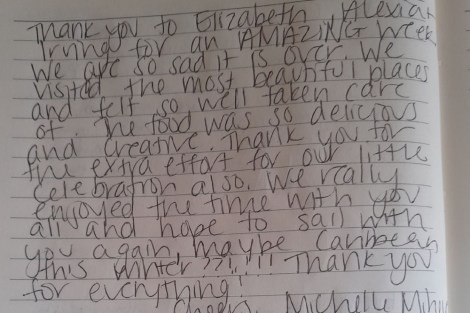 Thank you to Elizabeth, Alexia &
Irving for an AMAZING week
we are so sad it is over. We
visited the most beautiful places
and felt so well taken care
of. The food was so delicious
and creative. Thank you for
the extra effort for our little
celebration also. We really
enjoyed the time with you
all and hope to sail with
you again, maybe Caribbean
this winter ??!!!! Thank you
for everything!
Michelle